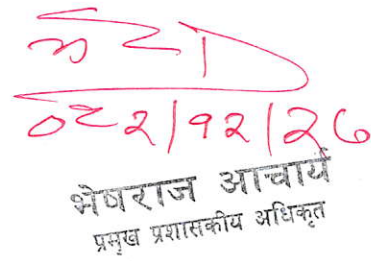 ०८२/१२/२७
भेषराज आचार्य
प्रमुख प्रशासकीय अधिकृत